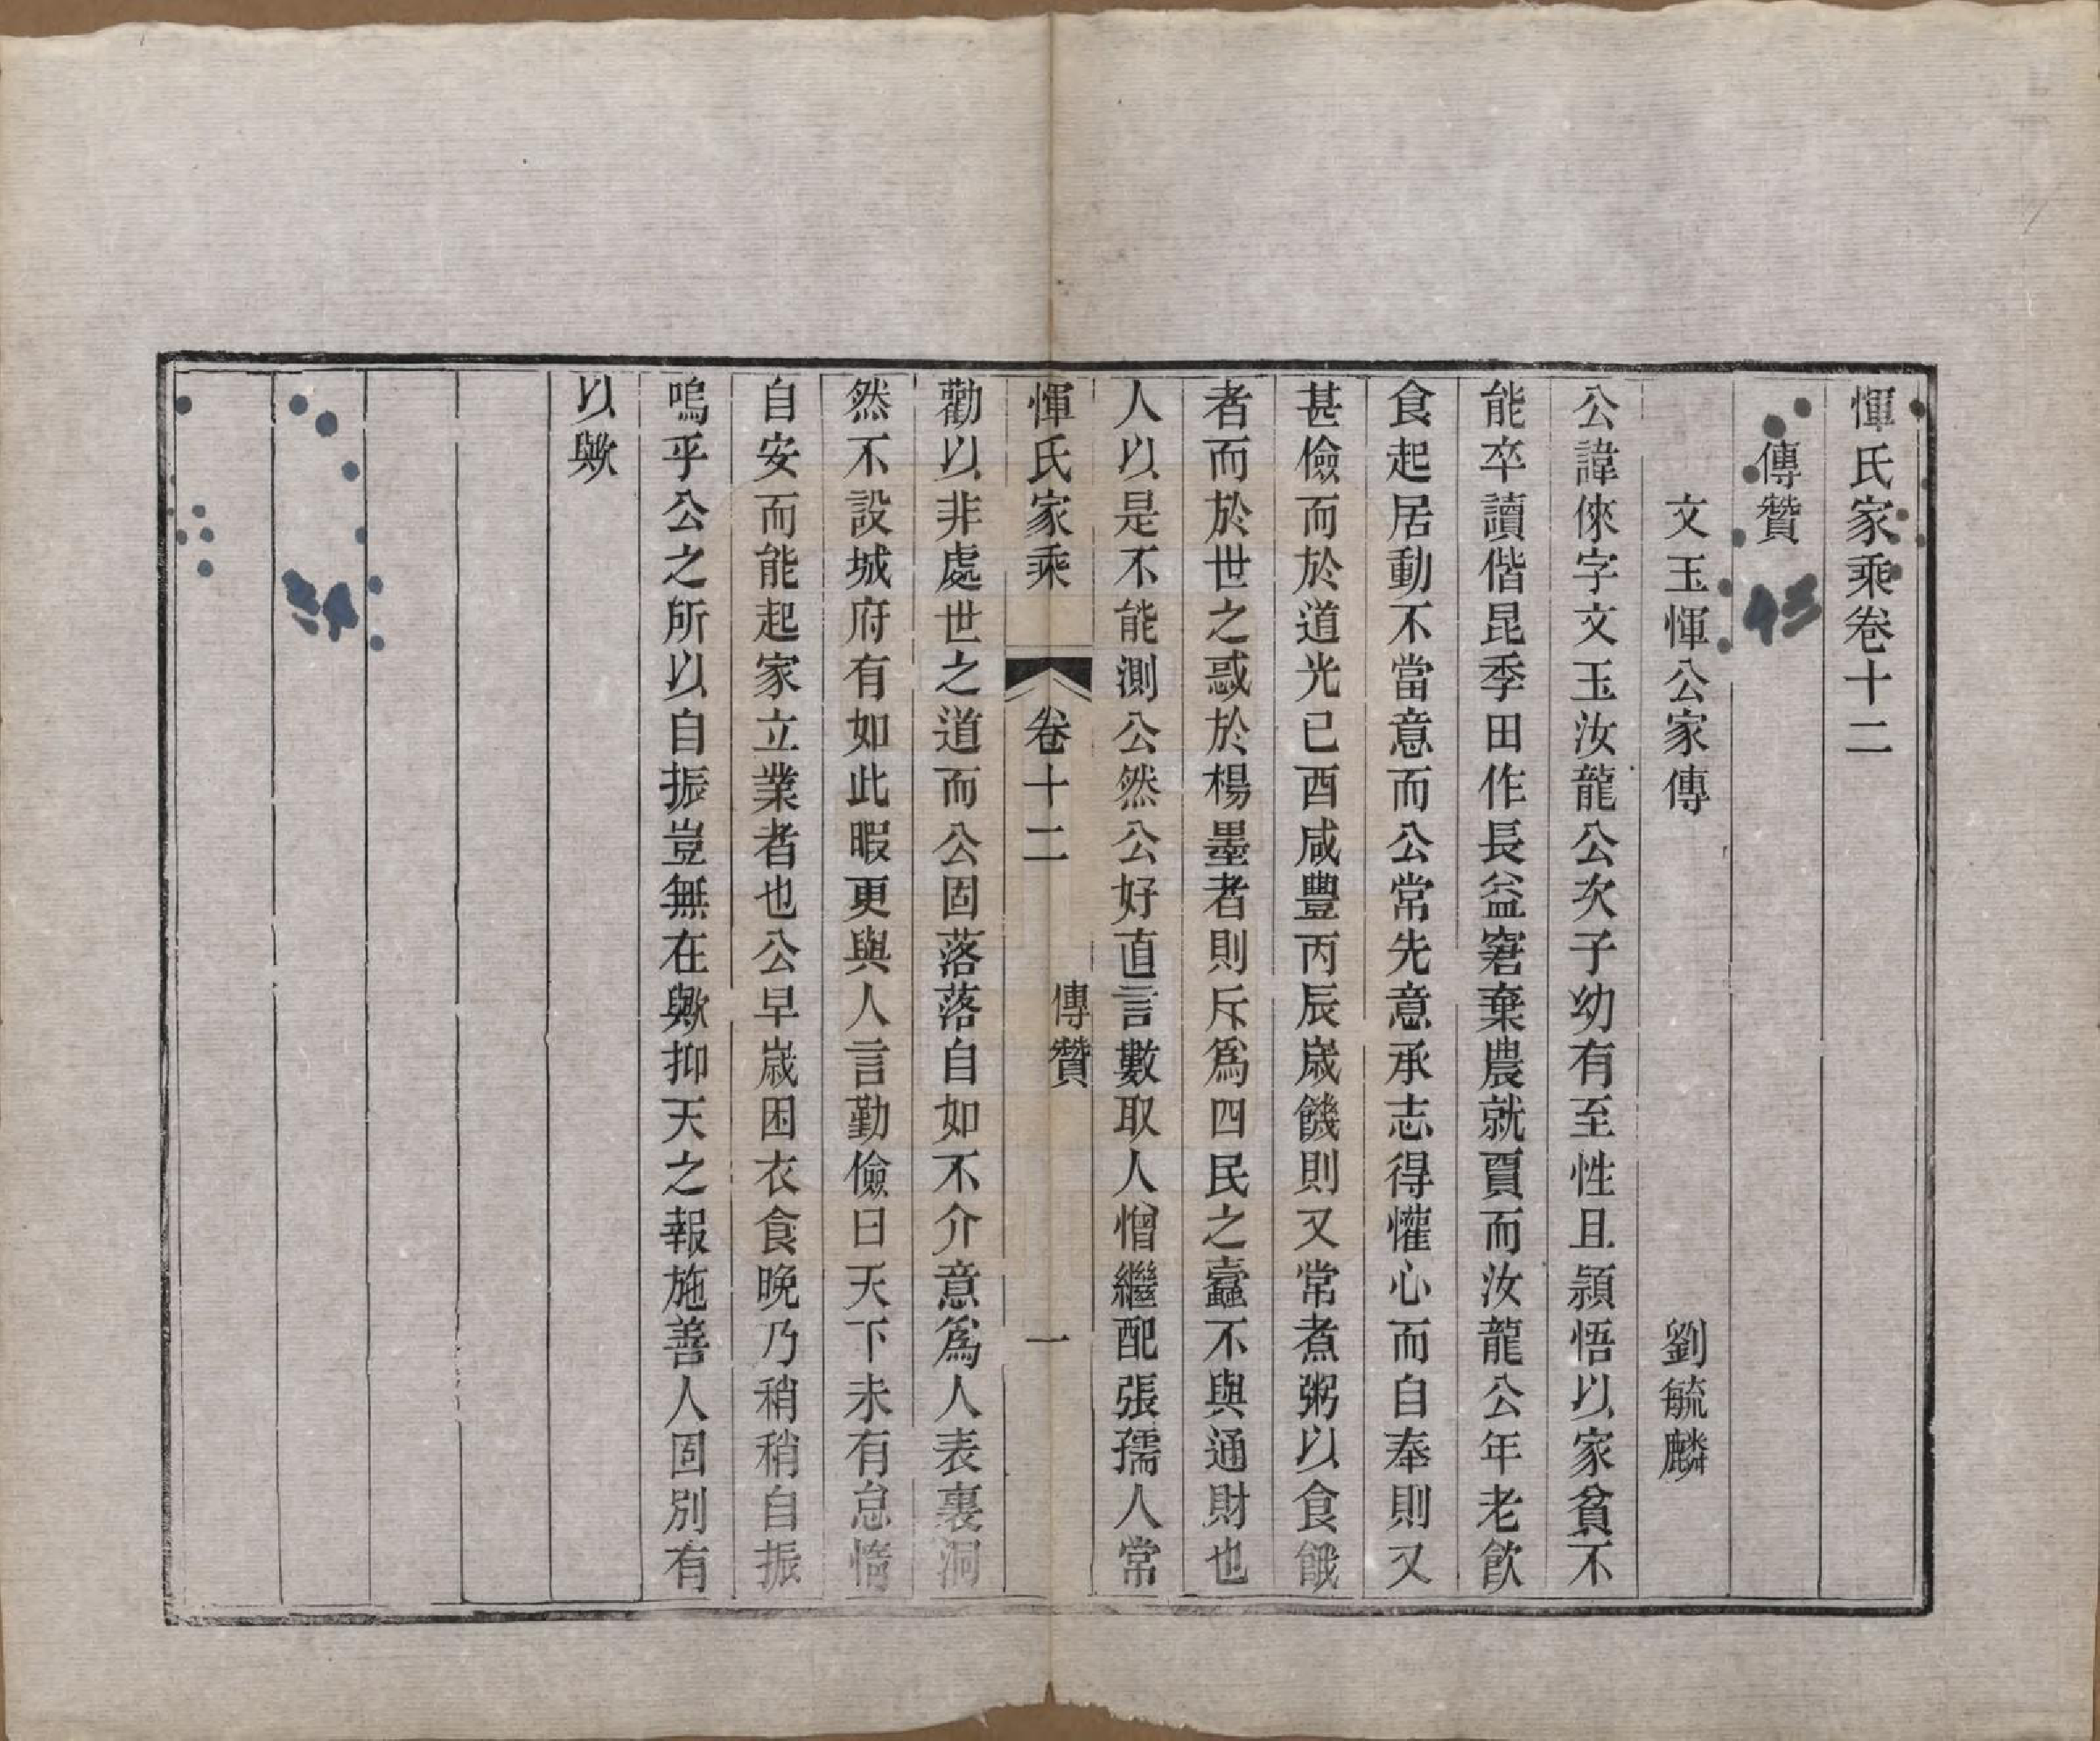 惲氏家乘卷十二
傳贊
文玉惲公家傳 劉毓麟
公諱倈字文玉汝龍公次子幼有至性且穎悟以家貧不
能卒讀偕昆季田作長益窘棄農就賈而汝龍公年老飲
食起居動不當意而公常先意承志得懽心而自奉則又
甚儉而於道光已酉咸豐丙辰歲饑則又常煮粥以食餓
者而於世之惑於楊墨者則斥爲四民之蠹不與通財也
人以是不能測公然公好直言數取人憎繼配張孺人常
惲氏家乘 卷十二 傳贊 一
勸以非處世之道而公固落落自如不介意爲人表裏洞
然不設城府有如此暇更與人言勤儉曰天下未有怠惰
自安而能起家立業者也公早歲困衣食晚乃稍稍自振
嗚乎公之所以自振豈無在歟抑天之報施善人固別有
以歟